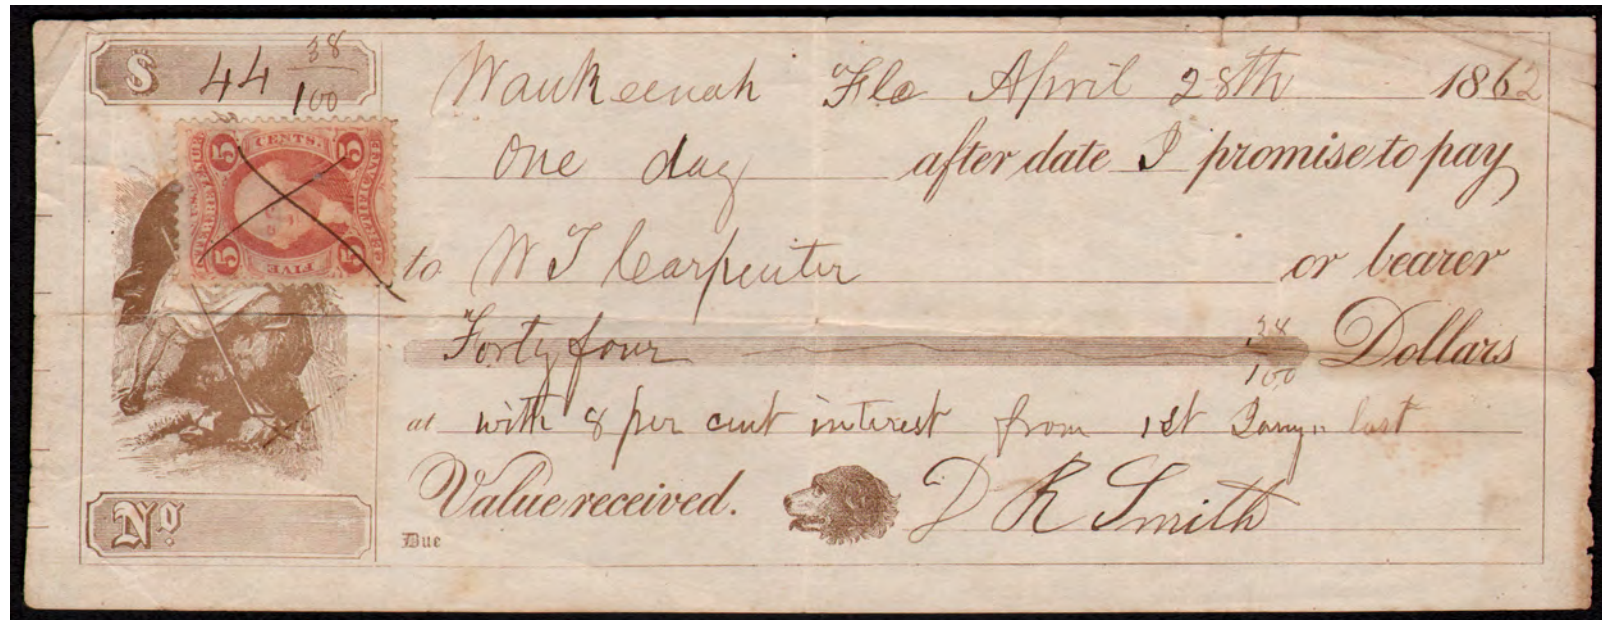 $ 44 38/100
Waukeenah Fla April 28th 1862
One day after date I promise to pay
to W T Carpenter or bearer
Forty four 38/100 Dollars
at with 8 per cent interest from 1st Jany last
Value received. D R Smith
No.
Due
5 CENTS. 5
INTER. REV.
CERTIFICATE
5 FIVE 5